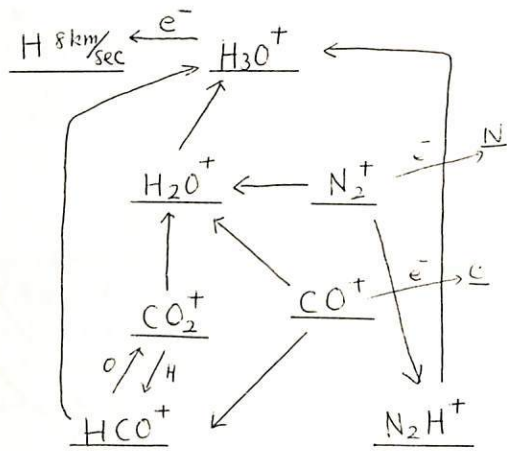 H 8km/sec e⁻ H3O⁺
H2O⁺ N2⁺ e⁻ N
CO2⁺ CO⁺ e⁻ C
O H
HCO⁺ N2H⁺